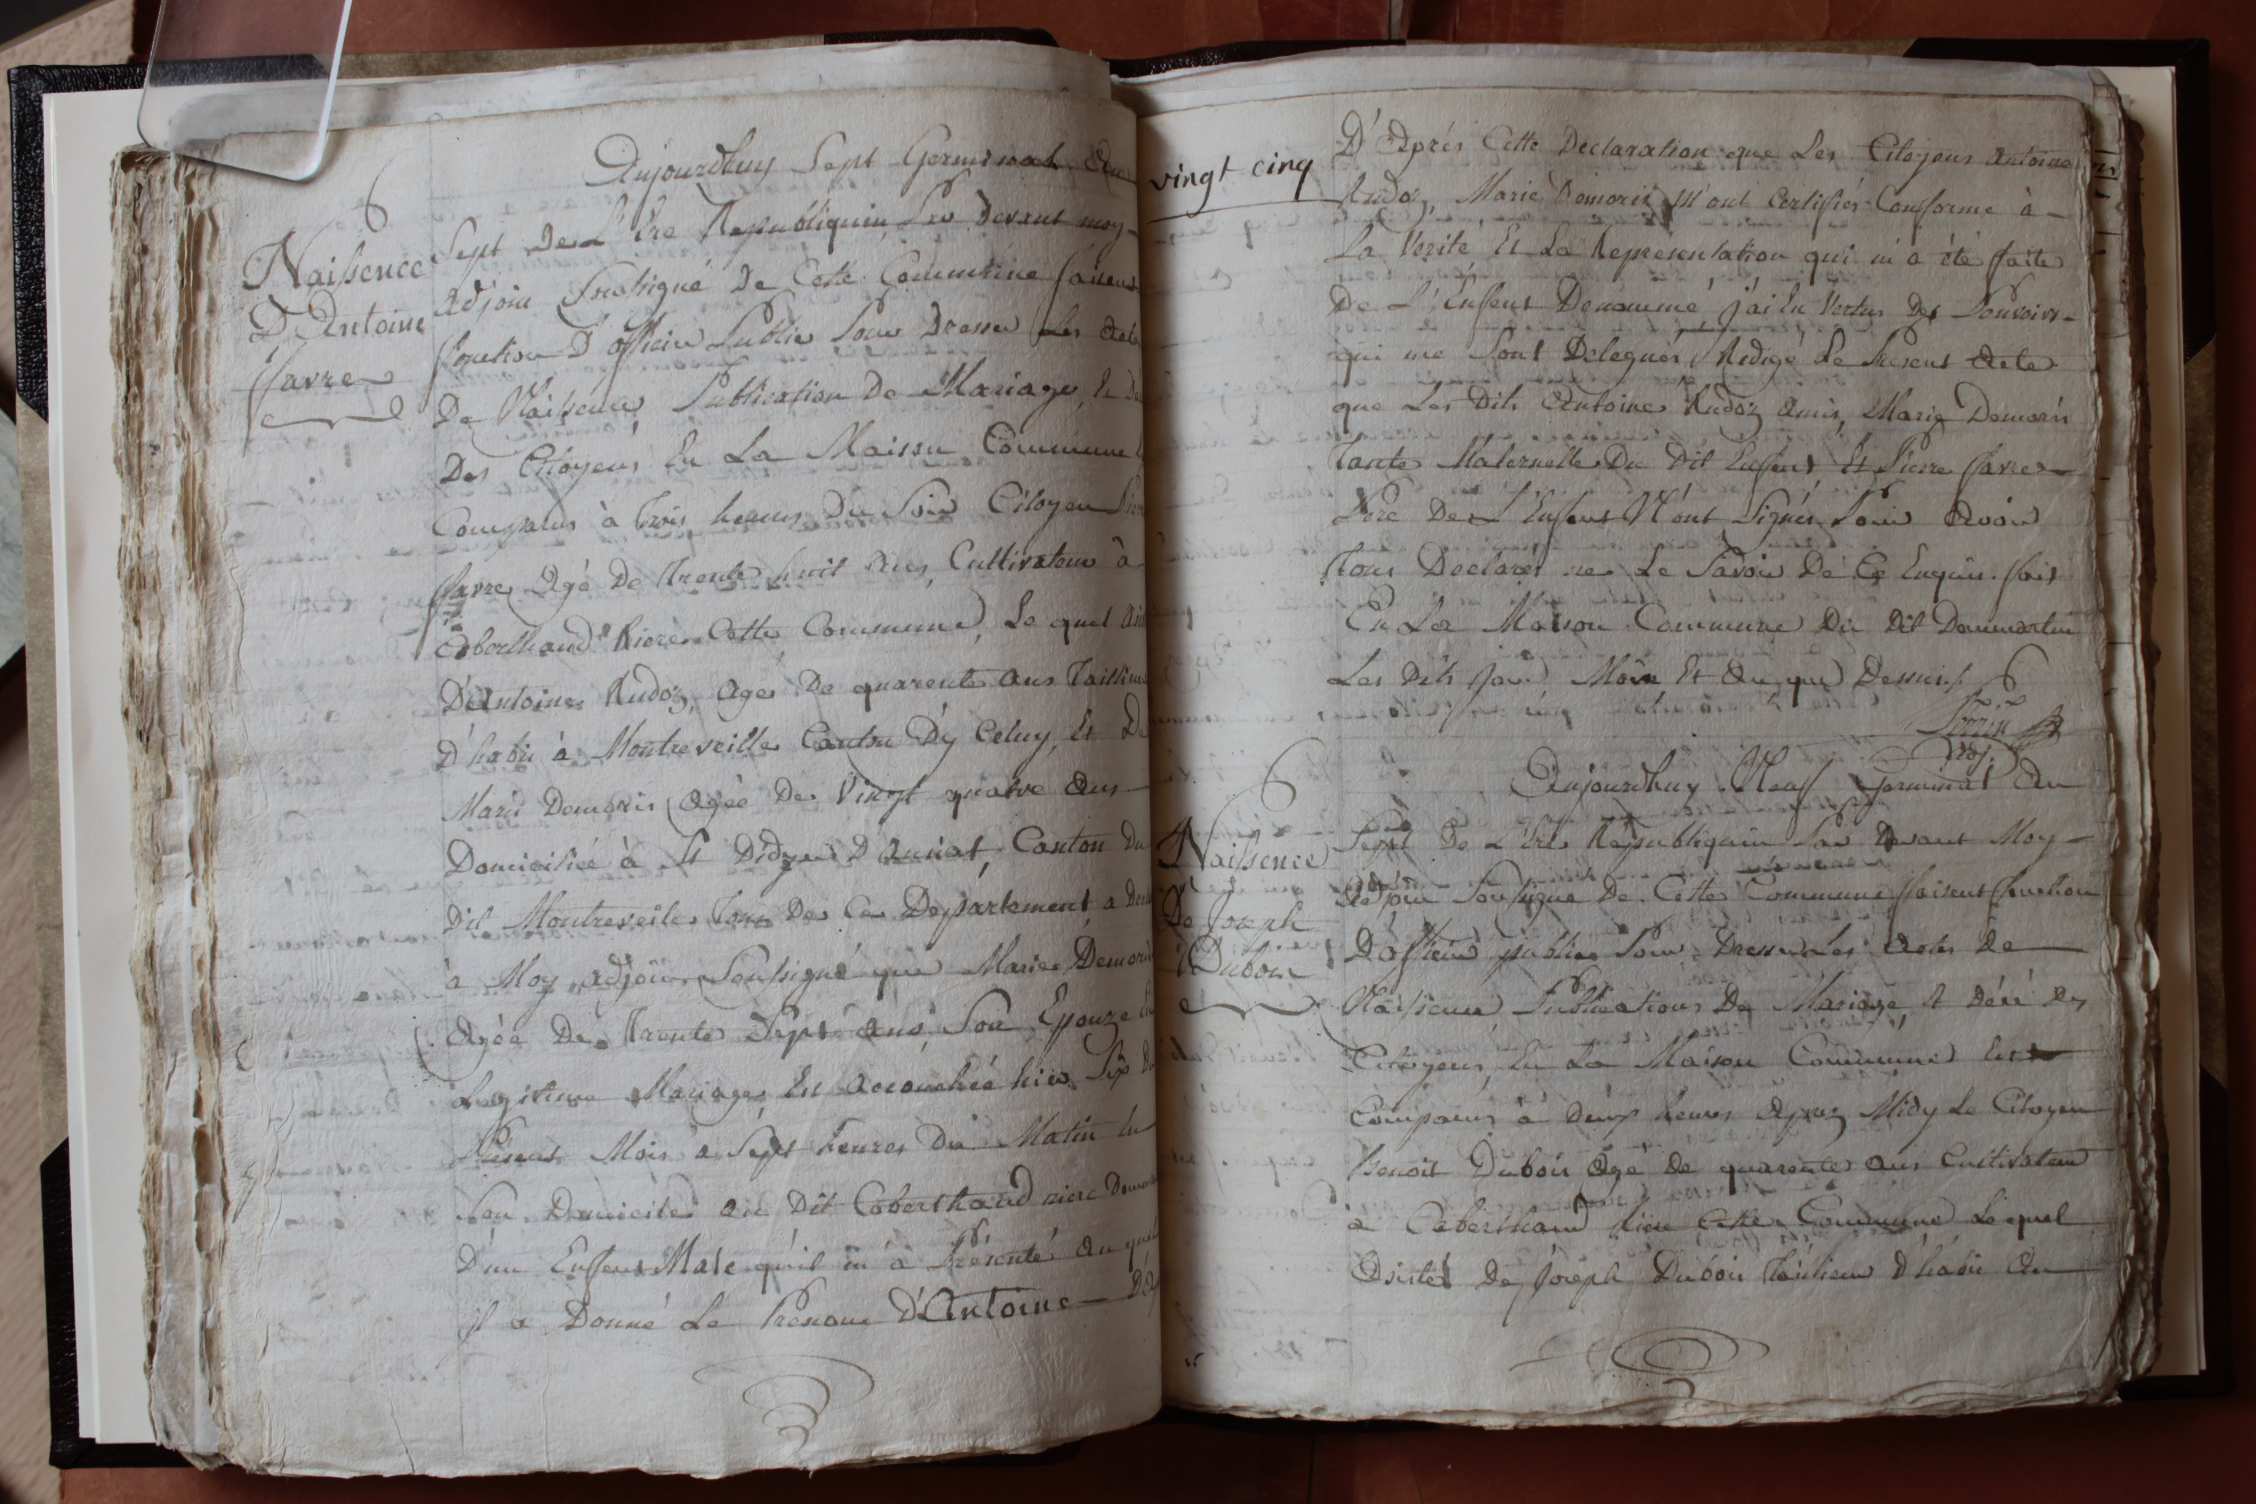 Aujourdhuy Sept Germinal An
Naissence
D'Antoine
favre
Sept de L'Ere Republiquin Par devant moy
Adjoin Soussigné De Cette Commune faisent
fonction D'officier Public Pour Dresser Les Actes
De Naissence Publication De Mariage, Et De
Des Citoyens En La Maison Commune
Comparus à Trois heures Du Soir Citoyen Pierre
favre Agé De Trente huit Ans, Cultivateur à
Coberthaud Riere Cette Commune, Le quel
D'Antoine Rudoz, Agé De quarente Ans Taillieur
D'habit à Montreveille Canton D'y Celuy, Et De
Marie Demoris Agée De Vingt quatre Ans
Domiciliée à St Didyer D'Aussiat, Canton Du
Dit Montreveile Tous De Ce Departement, a
à Moy adjoin Soussigné que Marie Demoris
Agée De Trente Sept Ans, Son Epouze En
Legitime Mariage, Est accouchée hier Six Du
Présent Mois à Sept heures Du Matin En
Son Domicile Au Dit Coberthaud riere
D'un Enfent Male qu'il m'à Présenté Au quel
Il a Donné Le Prénom D'Antoine
vingt cinq
D'Après Cette Declaration que Les Citoyens Antoine
Rudoz, Marie Demoris M'ont Certifiés Conforme à
La Verité Et La Representation qui m'a été faite
De L'Enfent Denommé j'ai En Vertus Des Pouvoirs
qui me Sont Delegués Redigé Le Present Acte
que Les Dits Antoine Rudoz Amis, Marie Demoris
Tante Maternelle Du Dit Enfent, Et Pierre favre
Pere De L'Enfent N'ont Signés Pour Avoir
Tous Declarés ne Le Savoir De Ce Enquis. fait
En La Maison Commune Du Dit Dommartin
Les Dits Jour Mois Et An que Dessus
Adj.
Aujourdhuy Neuf Germinal An
Naissence
De Joseph
Dubois
Sept De L'Ere Republiquin Par Devant Moy
Adjoin Soussigné De Cette Commune faisent fonction
D'officier public Pour Dresser Les Actes De
Naissence Publications De Mariage, Et Décé Des
Citoyens, En La Maison Commune Est
Comparus à Deux heures Aprez Midy Le Citoyen
Benoit Dubois Agé De quarente ans Cultivateur
à Coberthaud Riere Cette Commune Le quel
Assisté De Joseph Dubois Taillieur D'habit Au